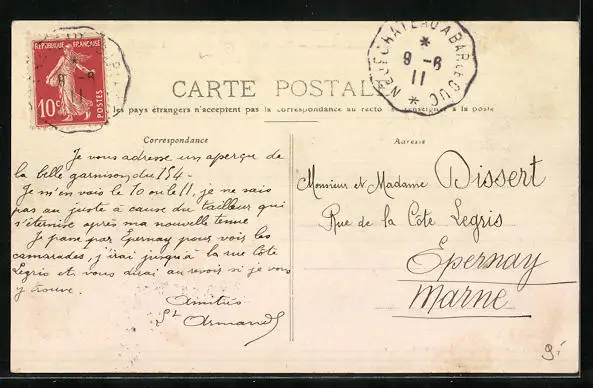 REPUBLIQUE FRANÇAISE
10c POSTES
NEUFCHATEAU A BAR LE DUC
9 -6
11
CARTE POSTALE
les pays étrangers n'acceptent pas la correspondance au recto à la poste
Correspondance
Je vous adresse un aperçu de
la belle garnison du 154-
Je m'en vais le 10 ou le 11, je ne sais
pas au juste à cause du tailleur qui
s'éternise après ma nouvelle tenue
Je passe par Epernay pour voir les
camarades, j'irai jusqu'à la rue Côte
Legris et vous dirai au revoir si je vous
y trouve.
Amitiés
St Armand
Adresse
Monsieur et Madame Dissert
Rue de la Côte Legris
Épernay
Marne